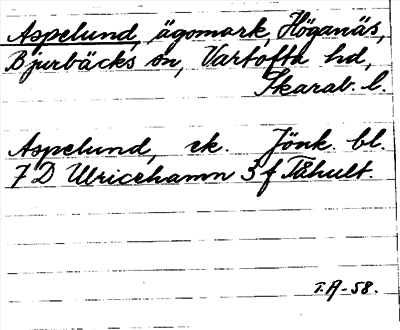 Aspelund, ägomark, Höganäs,
Bjurbäcks sn, Vartofta hd,
Skarab. l.
Aspelund, ek. Jönk. bl.
7 D Ulricehamn 3 f Tåhult.
I.A-58.